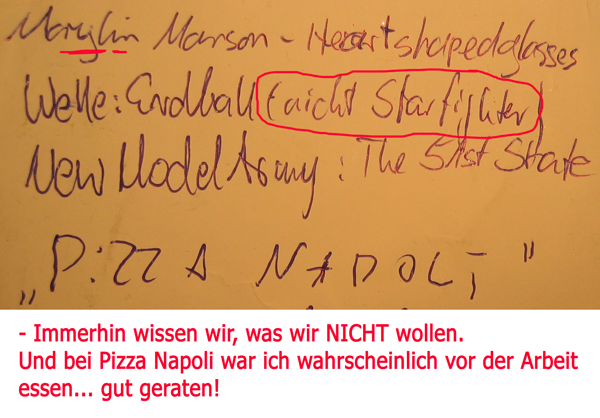 Marylin Manson - Heartshapedglasses
Welle: Erdball (nicht Starfighter)
New Model Army: The 51st State
„PIZZA NAPOLI"
- Immerhin wissen wir, was wir NICHT wollen.
Und bei Pizza Napoli war ich wahrscheinlich vor der Arbeit
essen... gut geraten!